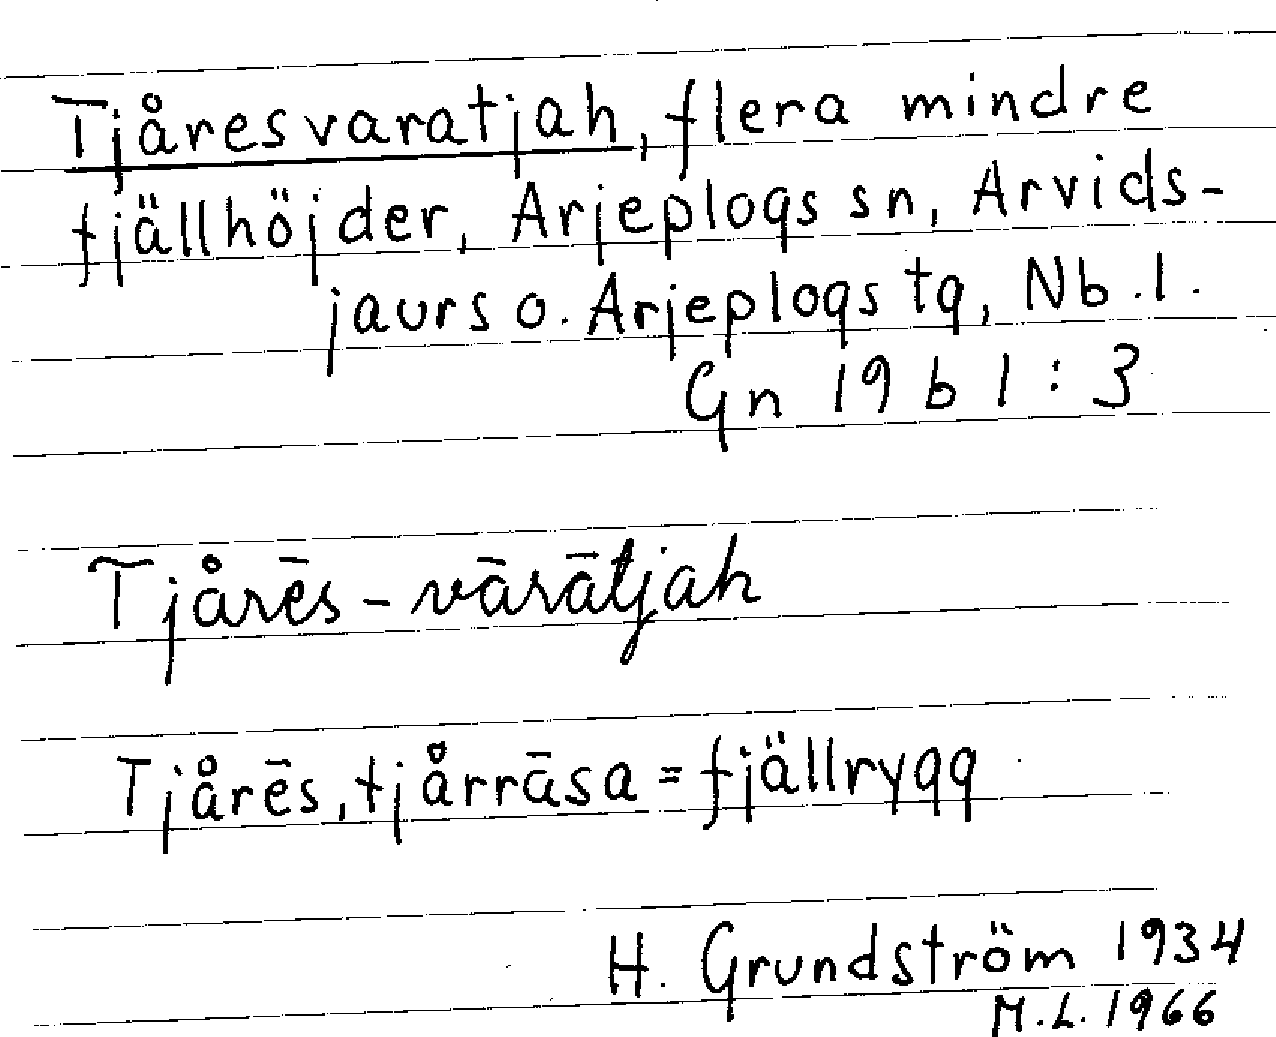 Tjåresvaratjah, flera mindre
fjällhöjder, Arjeplogs sn, Arvids-
jaurs o. Arjeplogs tg, Nb. l.
Gn 19 b 1 : 3
Tjårēs - vārātjah
Tjårēs, tjårrāsa = fjällrygg
H. Grundström 1934
M.L. 1966